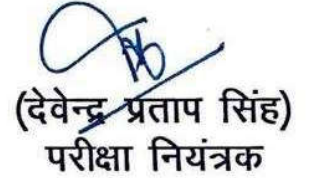 (देवेन्द्र प्रताप सिंह)
परीक्षा नियंत्रक